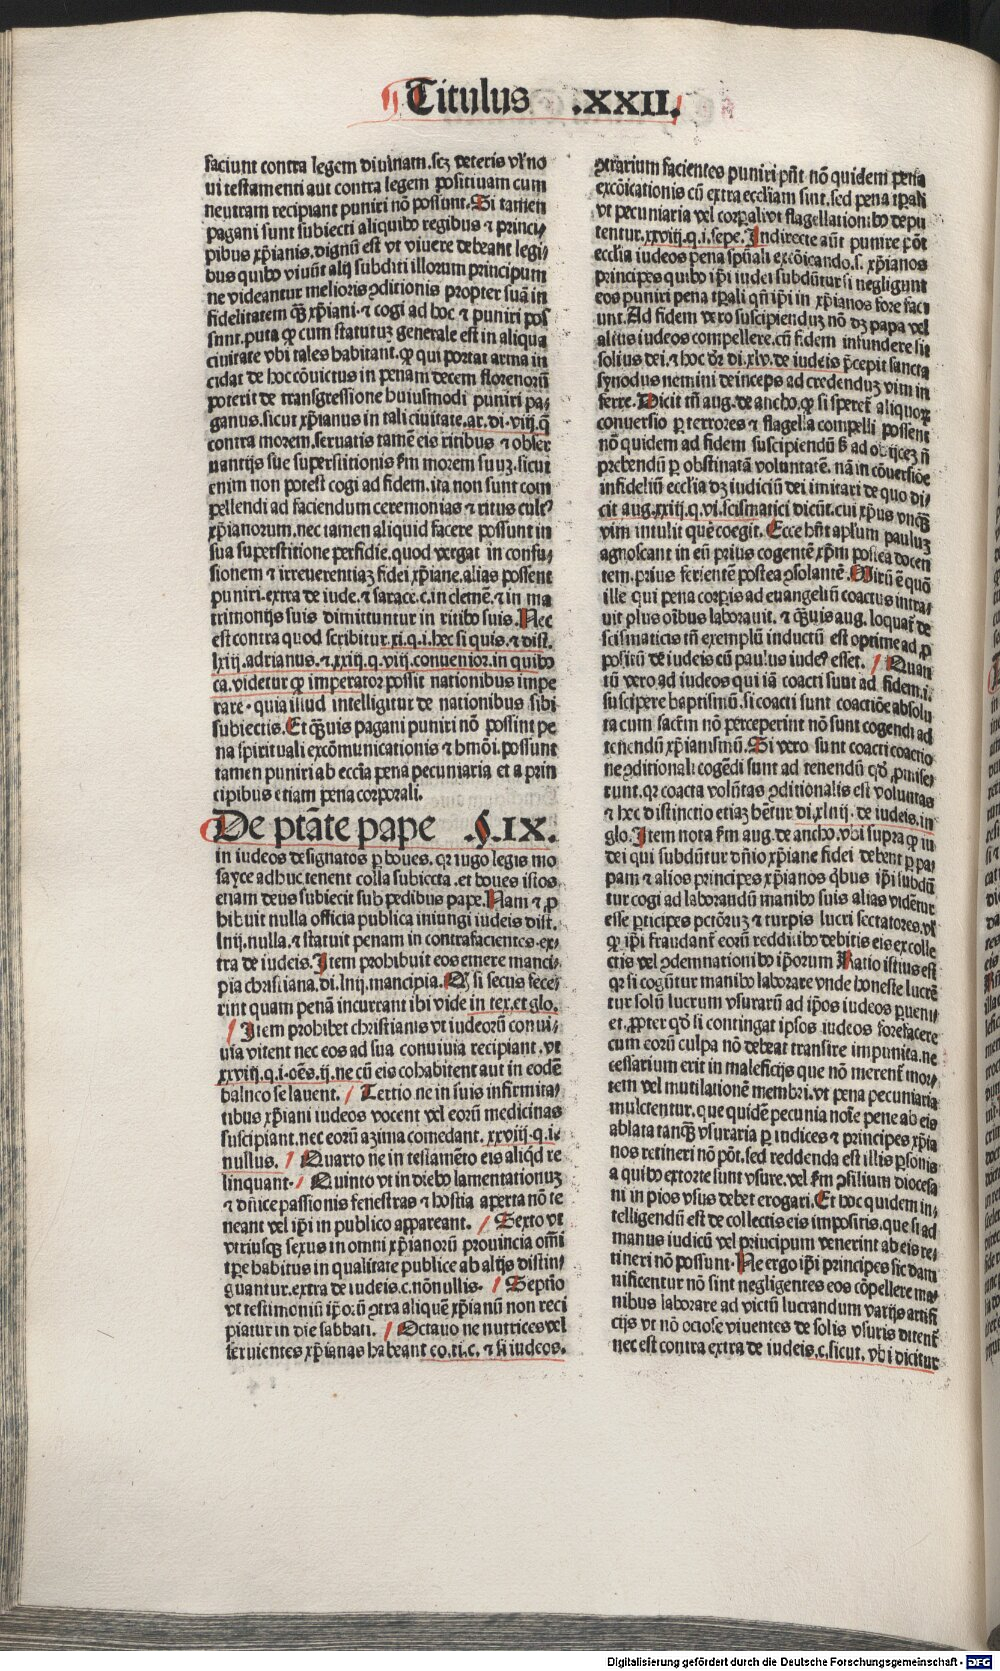 Titulus .XXII.
faciunt contra legem diuinam.scꝫ veteris vl̕ no
ui testamenti aut contra legem positiuam cum
neutram recipiant puniri nō possunt. Si tamen
pagani sunt subiecti aliquibꝰ regibus ⁊ princi⸗
pibus xp̄ianis. dignū est vt viuere debeant legi⸗
bus quibꝰ viuūt alij subditi illorum principum
ne videantur melioris ꝯditionis propter suā in
fidelitatem qꝫ xp̄iani. ⁊ cogi ad hoc ⁊ puniri pos
sunt. puta ꝙ cum statutuꝫ generale est in aliqua
ciuitate vbi tales habitant. ꝙ qui portat arma in
cidat de hoc cōuictus in penam decem florenorū
poterit de transgressione huiusmodi puniri pa⸗
ganus. sicut xp̄ianus in tali ciuitate. ar. di. viij. q̄
contra morem. seruatis tamē eis ritibus ⁊ obser
uantijs sue superstitionis ẜm morem suuꝫ. sicut
enim non potest cogi ad fidem. ita non sunt com
pellendi ad faciendum ceremonias ⁊ ritus cultꝰ
xp̄ianorum. nec tamen aliquid facere possunt in
sua superstitione perfidie. quod vergat in confu⸗
sionem ⁊ irreuerentiaꝫ fidei xp̄iane. alias possent
puniri. extra de iude. ⁊ sarace. c. in clemē. ⁊ in ma
trimonijs suis dimittuntur in ritibꝰ suis. Nec
est contra quod scribitur. xi. q. i. hec si quis. ⁊ dist.
lxiij. adrianus. ⁊. xxiij. q. viij. conuenior. in quibꝰ
ca. videtur ꝙ imperator possit nationibus impe
rare. quia illud intelligitur de nationibus sibi
subiectis. Et qꝫuis pagani puniri nō possint pe
na spirituali excōmunicationis ⁊ hmōi. possunt
tamen puniri ab eccīa pena pecuniaria et a prin
cipibus etiam pena corporali.
De ptāte pape .§. IX.
in iudeos designatos ꝑ boues. qꝛ iugo legis mo
sayce adhuc tenent colla subiecta. et boues istos
etiam deus subiecit sub pedibus pape. Nam ⁊ ꝓ
hibuit nulla officia publica iniungi iudeis dist.
liiij. nulla. ⁊ statuit penam in contrafacientes. ex⸗
tra de iudeis. Item prohibuit eos emere manci⸗
pia christiana. di. liiij. mancipia. Qꝫ si secus fece⸗
rint quam penā incurrant ibi vide in ter. et glo.
Item prohibet christianis vt iudeorū conui⸗
uia vitent nec eos ad sua conuiuia recipiant. vt
xxviij. q. i. oēs. ij. ne cū eis cohabitent aut in eodē
balneo se lauent. Tertio ne in suis infirmita⸗
tibus xp̄iani iudeos vocent vel eorū medicinas
suscipiant. nec eorū azima comedant. xxviij. q. i.
nullus. Quarto ne in testamēto eis aliqd re
linquant. Quinto vt in diebꝰ lamentationuꝫ
⁊ dn̄ice passionis fenestras ⁊ hostia aperta nō te
neant vel ip̄i in publico appareant. Sexto vt
vtriusqꝫ sexus in omni xp̄ianorū prouincia om̄i
tp̄e habitus in qualitate publice ab alijs distin⸗
guantur. extra de iudeis. c. nōnullis. Septīo
vt testimoniū ip̄orū ꝯtra aliquē xp̄ianū non reci
piatur in die sabbati. Octauo ne nutrices vel
seruientes xp̄ianas habeant eo. ti. c. ⁊ si iudeos.
ꝯtrarium facientes puniri pn̄t nō quidem pena
excōicationis cū extra eccl̄iam sint. sed pena tp̄ali
vt pecuniaria vel corꝑali vt flagellationibꝰ depu
tentur. xxviij. q. i. sepe. Indirecte aūt punire pōt
eccl̄ia iudeos pena spūali excōicando. s. xp̄ianos
principes quibꝰ ip̄i iudei subdūtur si negligunt
eos puniri pena tp̄ali qn̄ ip̄i in xp̄ianos fore faci
unt. Ad fidem vero suscipienduꝫ nō dꝫ papa vel
alius iudeos compellere. cū fidem infundere sit
solius dei. ⁊ hoc dr̄ di. xlv. de iudeis p̄cepit sancta
synodus nemini deinceps ad credenduꝫ vim in
ferre. Dicit tn̄ aug. de ancho. ꝙ si speret̄ aliquoꝝ
conuersio ꝑ terrores ⁊ flagella compelli possent
nō quidem ad fidem suscipiendū ẜ ad obijceꝫ n̄
prebendū ꝑ obstinatā voluntatē. nā in cōuersiōe
infideliū eccl̄ia dꝫ iudiciū dei imitari de quo di⸗
cit aug. xxiij. q. vi. scismatici dicūt. cui xp̄us vnqꝫ
vim intulit quē coegit. Ecce hn̄t apl̄um pauluꝫ
agnoscant in eū prius cogentē xp̄m postea docen
tem. prius ferientē postea ꝯsolantē. Mirū ē quō
ille qui pena corꝑis ad euangeliū coactus intra⸗
uit plus oībus laborauit. ⁊ qꝫuis aug. loquat̄ de
scismaticis tn̄ exemplū inductū est optime ad ꝓ
positū de iudeis cū paulus iudeꝰ esset. Quan
tū vero ad iudeos qui iā coacti sunt ad fidem. i.
suscipere baptismū. si coacti sunt coactiōe absolu
ta cum sacr̄m nō perceperint nō sunt cogendi ad
tenendū xp̄ianismū. Si vero sunt coacti coactio
ne ꝯditionali cogēdi sunt ad tenendū qd̕ ꝓmise⸗
runt. qꝛ coacta volūtas ꝯditionalis est voluntas
⁊ hec distinctio etiaꝫ hētur di. xlv. de iudeis. in
glo. Item nota ẜm aug. de ancho. vbi supra ꝙ iu
dei qui subdūtur dn̄io xp̄iane fidei debent ꝑ pa⸗
pam ⁊ alios principes xp̄ianos qbus ip̄i subdū
tur cogi ad laborandū manibꝰ suis alias vidētur
esse ꝑticipes pctōruꝫ ⁊ turpis lucri sectatores. vl̕
ꝙ ip̄i fraudant̄ eorū redditibꝰ debitis eis ex colle
ctis vel ꝯdemnationibꝰ ip̄orum Ratio istius est
qꝛ si cogūtur manibꝰ laborare vnde honeste lucrē
tur solū lucrum vsurarū ad ip̄os iudeos ꝑueni⸗
et. ꝓpter qd̕ si contingat ipsos iudeos forefacere
cum eorū culpa nō debeat transire impunita. ne
cessarium erit in maleficijs que nō merent̄ mor⸗
tem vel mutilationē membri. vt pena pecuniaria
mulctentur. que quidē pecunia noīe pene ab eis
ablata tanqꝫ vsuraria ꝑ iudices ⁊ principes xp̄ia
nos retineri nō pōt. sed reddenda est illis ꝑsonis
a quibꝰ extorte sunt vsure. vel ẜm ꝯsilium diocesa
ni in pios vsus debet erogari. Et hoc quidem in⸗
telligendū est de collectis eis impositis. que si ad
manus iudicū vel principum venerint ab eis re⸗
tineri nō possunt. Ne ergo ip̄i principes sic dam
nificentur nō sint negligentes eos cōpellere ma⸗
nibus laborare ad victū lucrandum varijs artifi
cijs vt nō ociose viuentes de solis vsuris ditent̄
nec est contra extra de iudeis. c. sicut. vbi dicitur
Digitalisierung gefördert durch die Deutsche Forschungsgemeinschaft - DFG